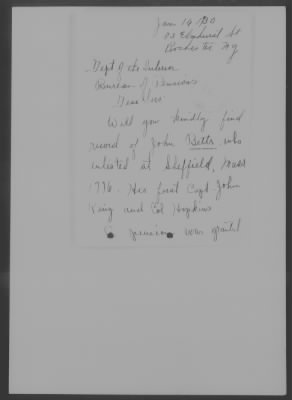 Jan 14 '30
Elmhurst St
Rochester NY
Dept of the Interior
Bureau of Pensions
Dear Sirs
Will you kindly find
record of John Betts who
enlisted at Sheffield, Mass
1776. His first Capt John
King and Col Hopkins
A pension was granted